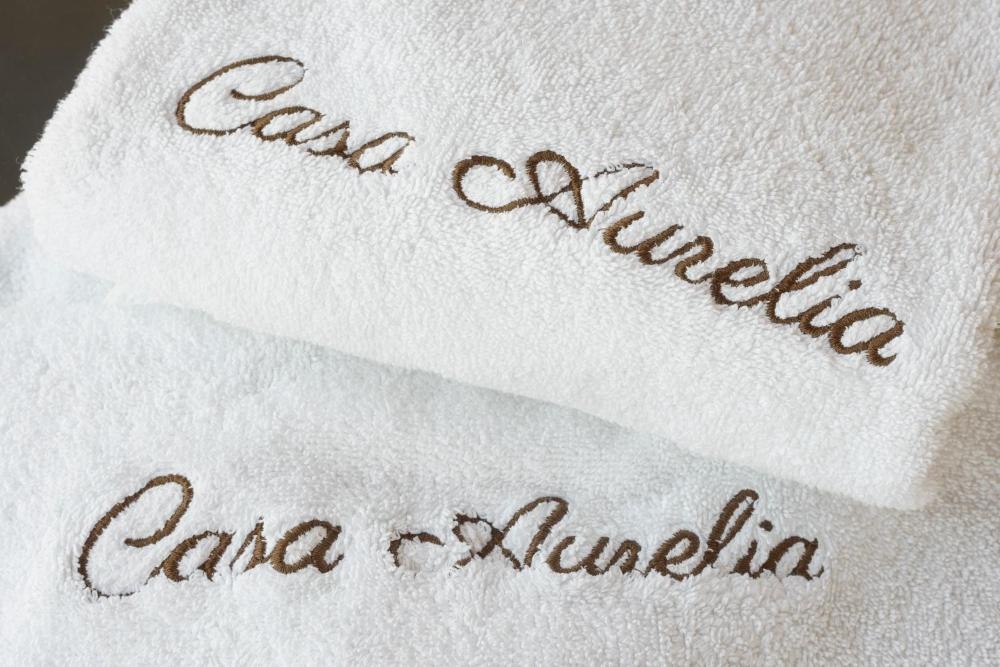 Casa Aurelia
Casa Aurelia